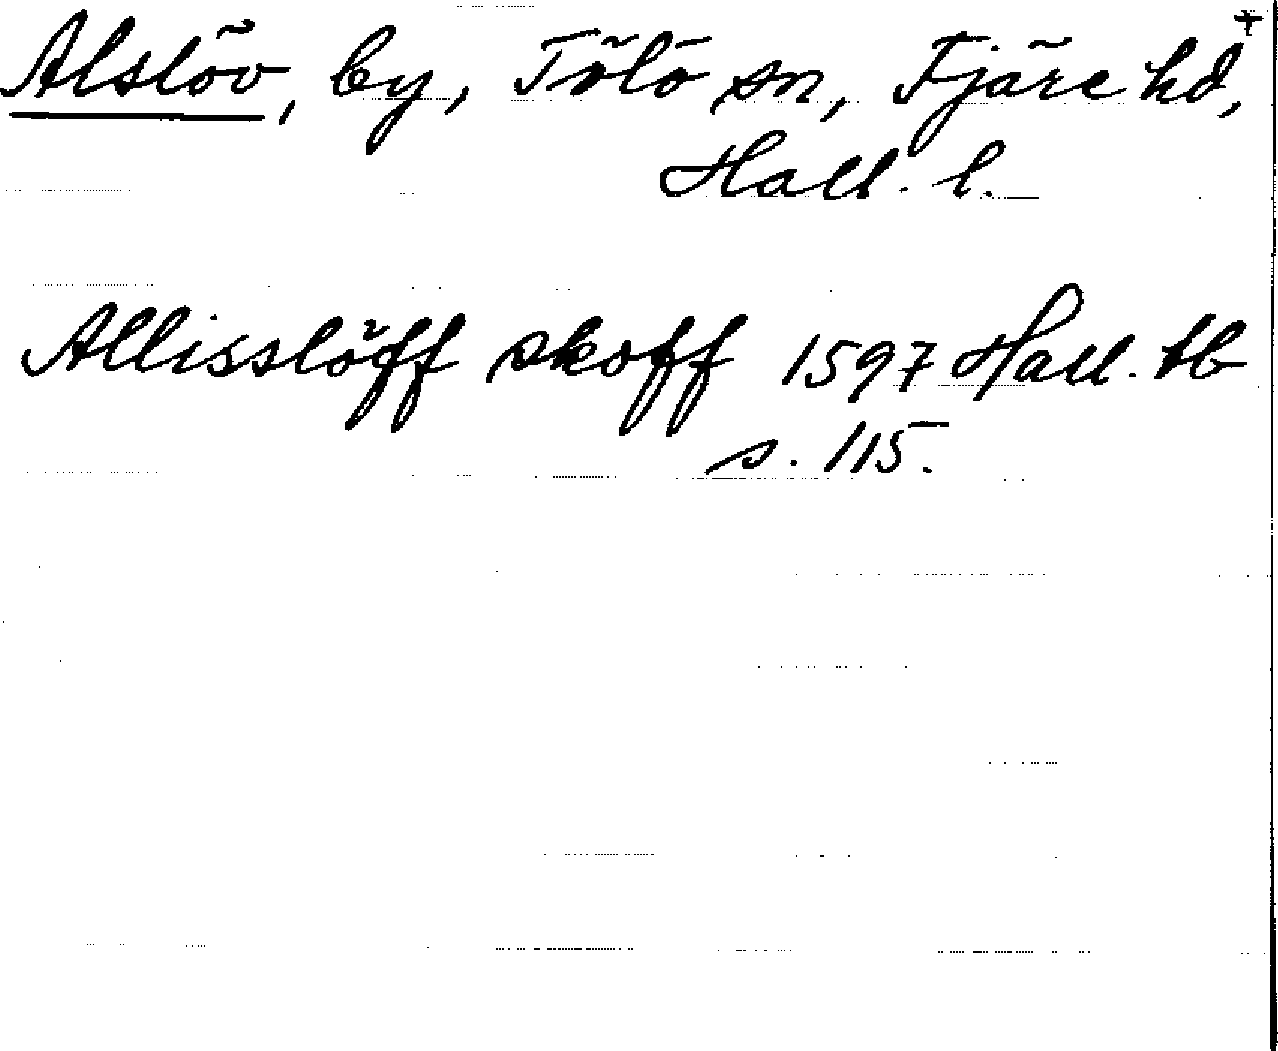 +
Alslöv, by, Tölö sn, Fjäre hd,
Hall. l.
Allisslöff skoff 1597 Hall. tb
s. 115.